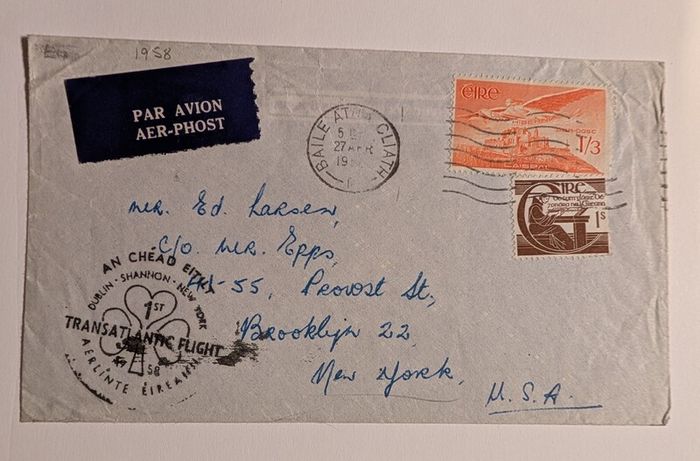 1958
PAR AVION
AER-PHOST
BAILE ÁTHA CLIATH
27 APR
ÉIRE
HIBERNIA
CAISEAL
1/3
ÉIRE
1s
Mr. Ed. Larsen,
c/o Mr. Epps,
55, Provost St.,
Brooklyn 22,
New York,
U.S.A.
AN CHÉAD EITILT
DUBLIN · SHANNON · NEW YORK
1ST
TRANSATLANTIC FLIGHT
58
AERLINTE ÉIREANN